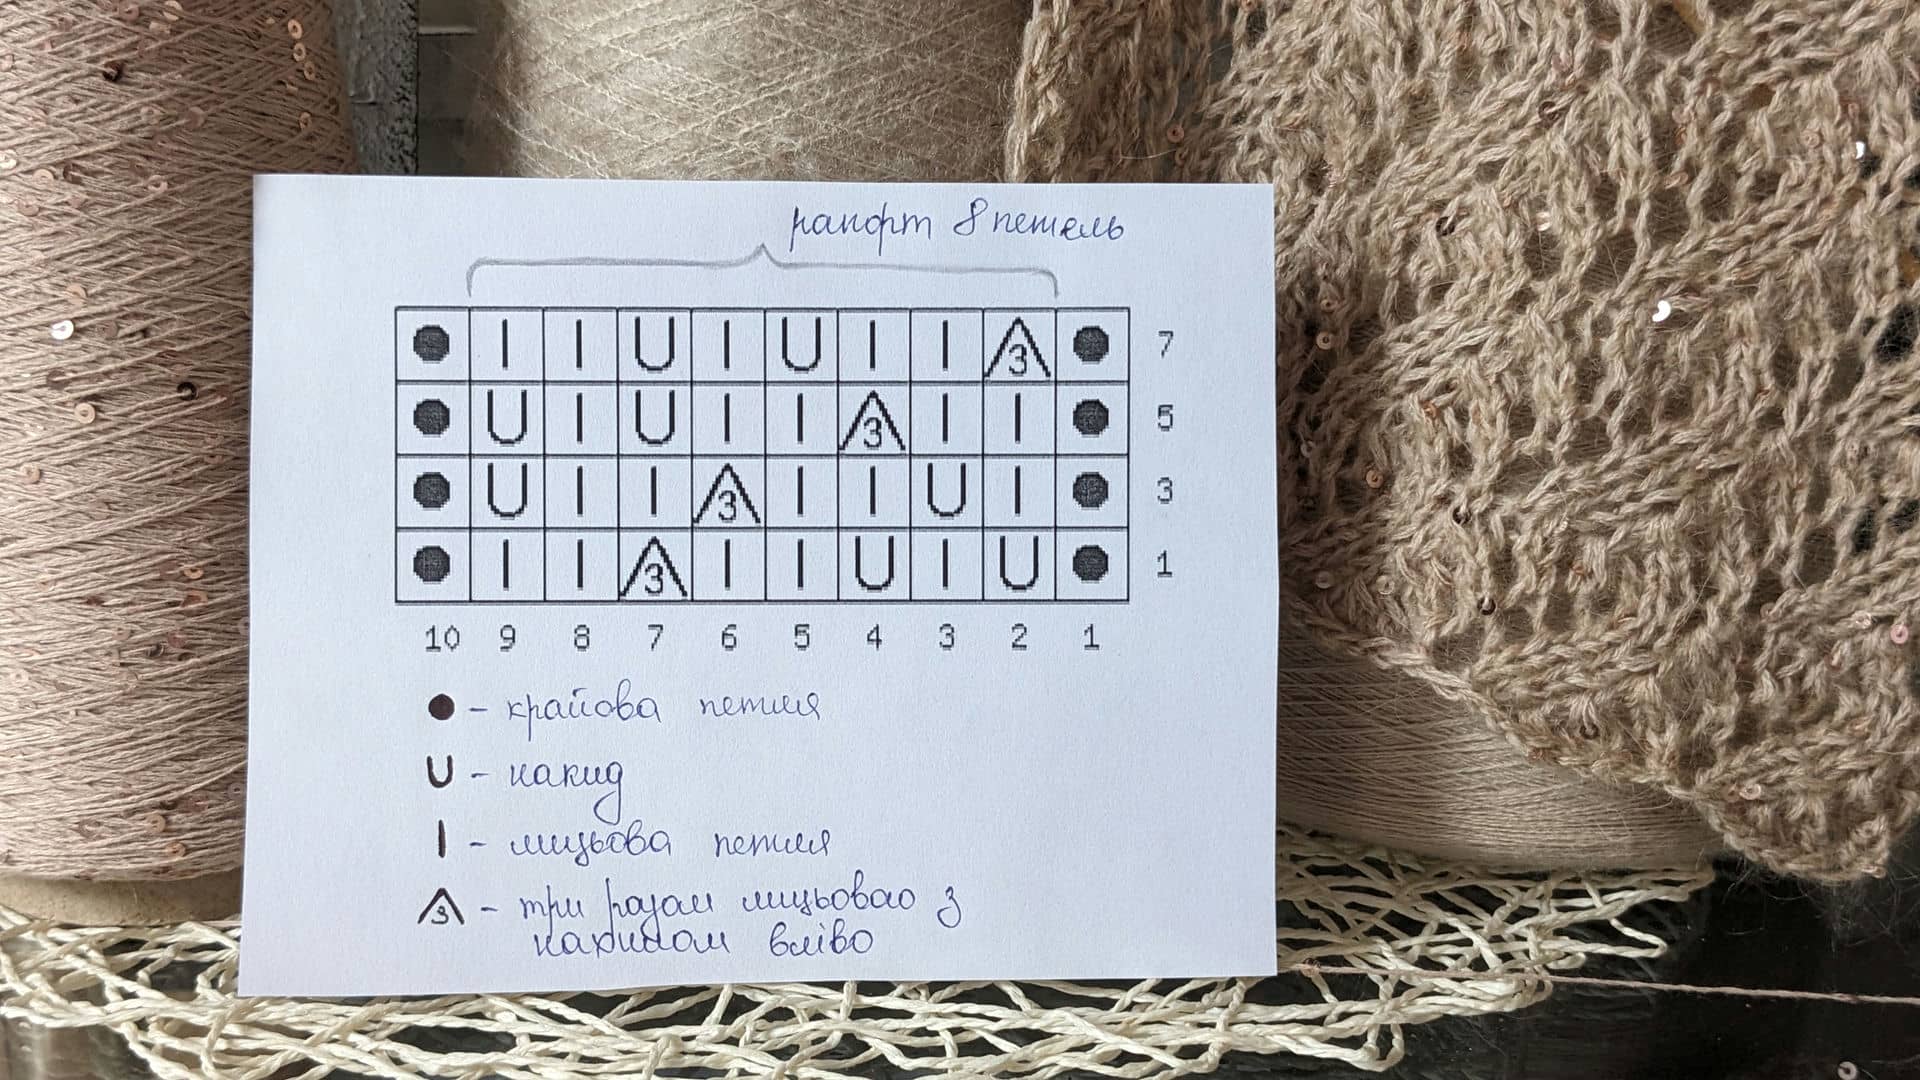 рапорт 8 петель
● I I U I U I I 3 ● 7
● U I U I I 3 I I ● 5
● U I I 3 I I U I ● 3
● I I 3 I I U I U ● 1
10 9 8 7 6 5 4 3 2 1
● - крайова петля
U - накид
I - лицьова петля
3 - три разом лицьовою з
нахилом вліво